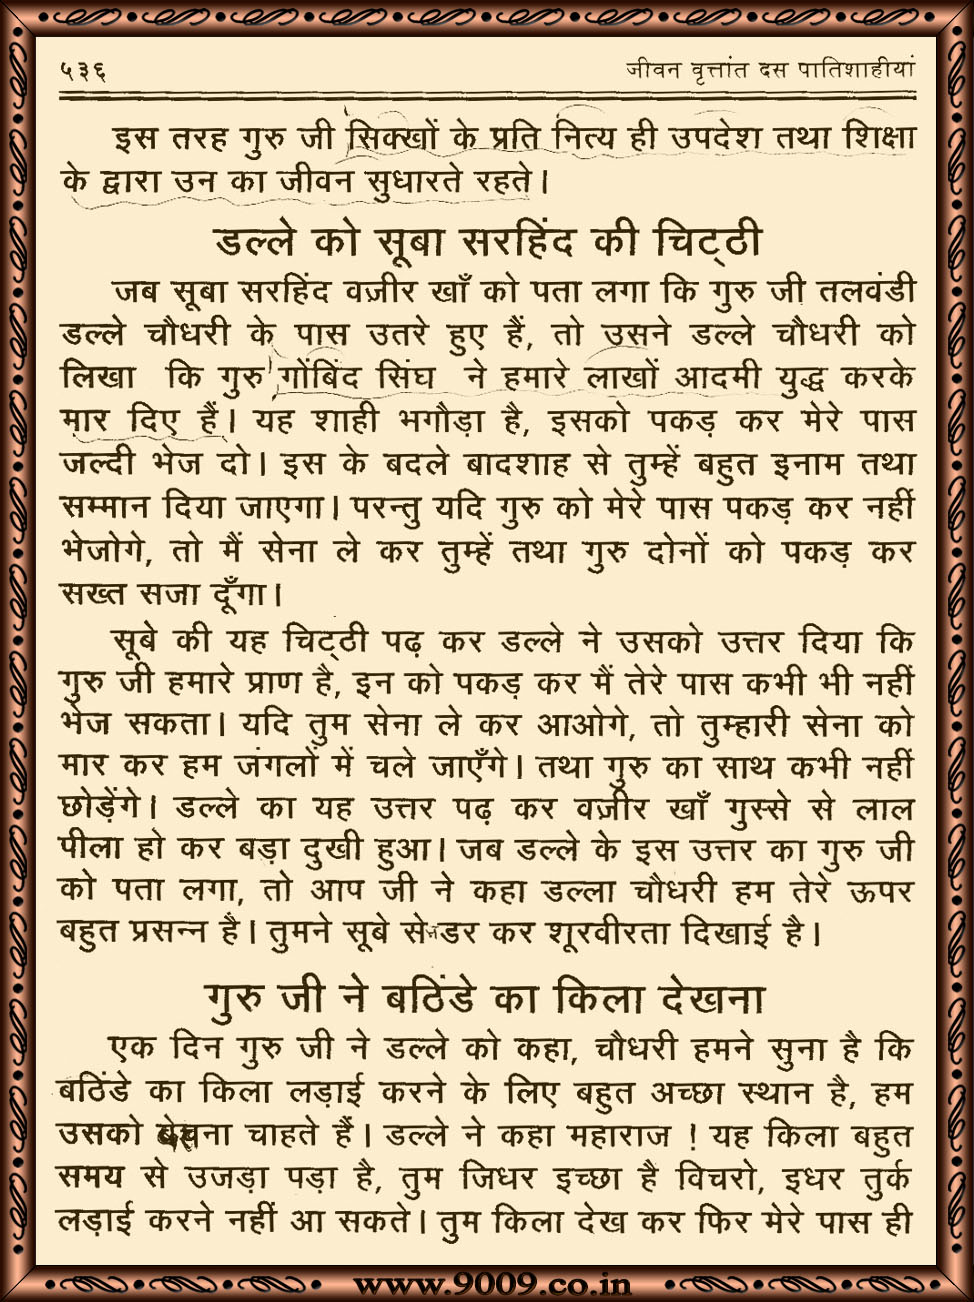 ५३६ जीवन वृत्तांत दस पातिशाहीयां
इस तरह गुरु जी सिक्खों के प्रति नित्य ही उपदेश तथा शिक्षा
के द्वारा उन का जीवन सुधारते रहते।
डल्ले को सूबा सरहिंद की चिट्ठी
जब सूबा सरहिंद वज़ीर खाँ को पता लगा कि गुरु जी तलवंडी
डल्ले चौधरी के पास उतरे हुए हैं, तो उसने डल्ले चौधरी को
लिखा कि गुरु गोंबिंद सिंघ ने हमारे लाखों आदमी युद्ध करके
मार दिए हैं। यह शाही भगौड़ा है, इसको पकड़ कर मेरे पास
जल्दी भेज दो। इस के बदले बादशाह से तुम्हें बहुत इनाम तथा
सम्मान दिया जाएगा। परन्तु यदि गुरु को मेरे पास पकड़ कर नहीं
भेजोगे, तो मैं सेना ले कर तुम्हें तथा गुरु दोनों को पकड़ कर
सख्त सजा दूँगा।
सूबे की यह चिट्ठी पढ़ कर डल्ले ने उसको उत्तर दिया कि
गुरु जी हमारे प्राण है, इन को पकड़ कर मैं तेरे पास कभी भी नहीं
भेज सकता। यदि तुम सेना ले कर आओगे, तो तुम्हारी सेना को
मार कर हम जंगलों में चले जाएँगे। तथा गुरु का साथ कभी नहीं
छोड़ेंगे। डल्ले का यह उत्तर पढ़ कर वज़ीर खाँ गुस्से से लाल
पीला हो कर बड़ा दुखी हुआ। जब डल्ले के इस उत्तर का गुरु जी
को पता लगा, तो आप जी ने कहा डल्ला चौधरी हम तेरे ऊपर
बहुत प्रसन्न है। तुमने सूबे से न डर कर शूरवीरता दिखाई है।
गुरु जी ने बठिंडे का किला देखना
एक दिन गुरु जी ने डल्ले को कहा, चौधरी हमने सुना है कि
बठिंडे का किला लड़ाई करने के लिए बहुत अच्छा स्थान है, हम
उसको चाहते हैं। डल्ले ने कहा महाराज ! यह किला बहुत
समय से उजड़ा पड़ा है, तुम जिधर इच्छा है विचरो, इधर तुर्क
लड़ाई करने नहीं आ सकते। तुम किला देख कर फिर मेरे पास ही
www.9009.co.in